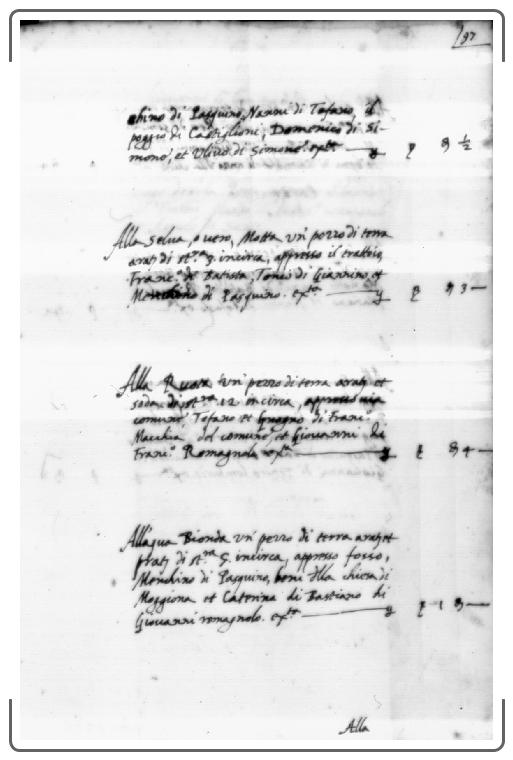 97
chino di Pasquino, Nanni di Tofano, il
poggio di Castiglioni, Domenico di Si-
mone, et Ulivo di Simone. ex.ta
½
Alla Selva, o vero, Motta un' pezzo di terra
arat. di st.ra 5. incirca, appresso il trattoio,
Franc.o di Batista, Tonio di Giannino, et
Menchino di Pasquino. ex.ta 3 —
Alla Ruota un' pezzo di terra arat. et
soda di st.ra 12 incirca, appresso via
comune, Tofano et Gnagno di Franc.o
Macchia, del comune, et Giovanni di
Franc.o Romagnolo ex.ta 4 —
All'agua Bionda un' pezzo di terra arat. et
prat. di st.ra 5. incirca, appresso fosso,
Menchino di Pasquino, beni della chiesa di
Moggiona et Caterina di Bastiano di
Giovanni romagnolo. ex.ta 1
Alla